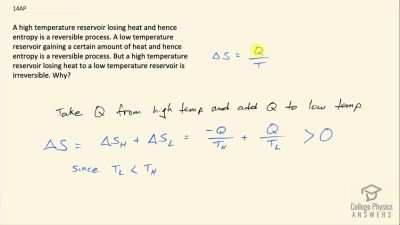 14AP
A high temperature reservoir losing heat and hence
entropy is a reversible process. A low temperature
reservoir gaining a certain amount of heat and hence
entropy is a reversible process. But a high temperature
reservoir losing heat to a low temperature reservoir is
irreversible. Why?
ΔS = Q/T
Take Q from high temp and add Q to low temp
ΔS = ΔS_H + ΔS_L = -Q/T_H + Q/T_L > 0
since T_L < T_H
College Physics
ANSWERS